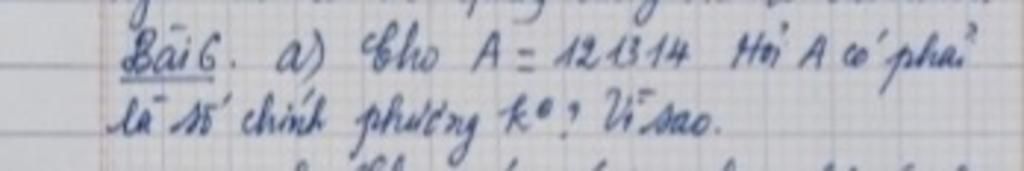 Bài 6. a) Cho A = 121314 Hỏi A có phải
là số chính phương k°? Vì sao.